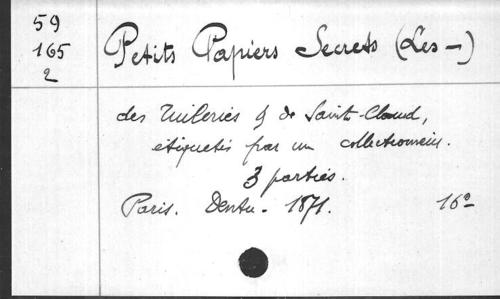 59
165
2
Petits Papiers Secrets (Les -)
des Tuileries & de Saint-Cloud,
étiquetés par un collectionneur.
3 parties.
Paris. Dentu - 1871. 16º